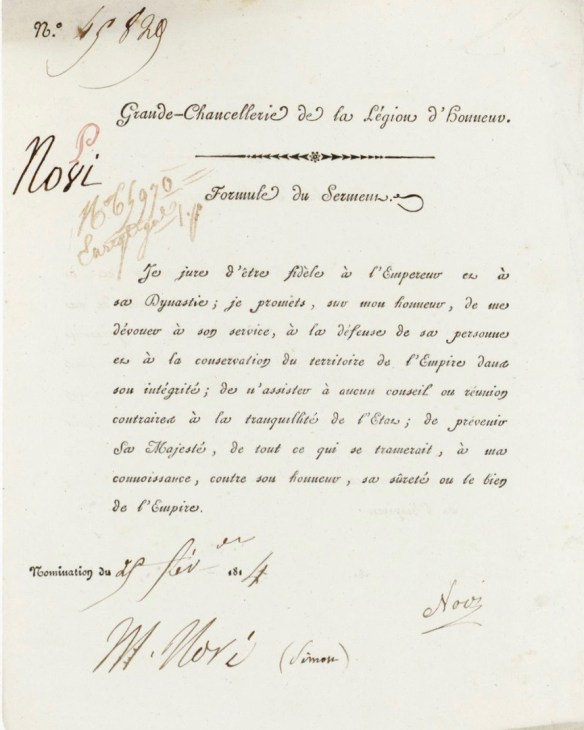 N.o 45829
Grande-Chancellerie de la Légion d'Honneur.
Novi
P
Formule du Serment.
Je jure d'être fidèle à l'Empereur et à
sa Dynastie; je promets, sur mon honneur, de me
dévouer à son service, à la défense de sa personne
et à la conservation du territoire de l'Empire dans
son intégrité; de n'assister à aucun conseil ou réunion
contraires à la tranquillité de l'Etat; de prévenir
Sa Majesté, de tout ce qui se tramerait, à ma
connoissance, contre son honneur, sa sûreté ou le bien
de l'Empire.
Nomination du 25 fév.er 1814
Novi
M. Novi (Simon)